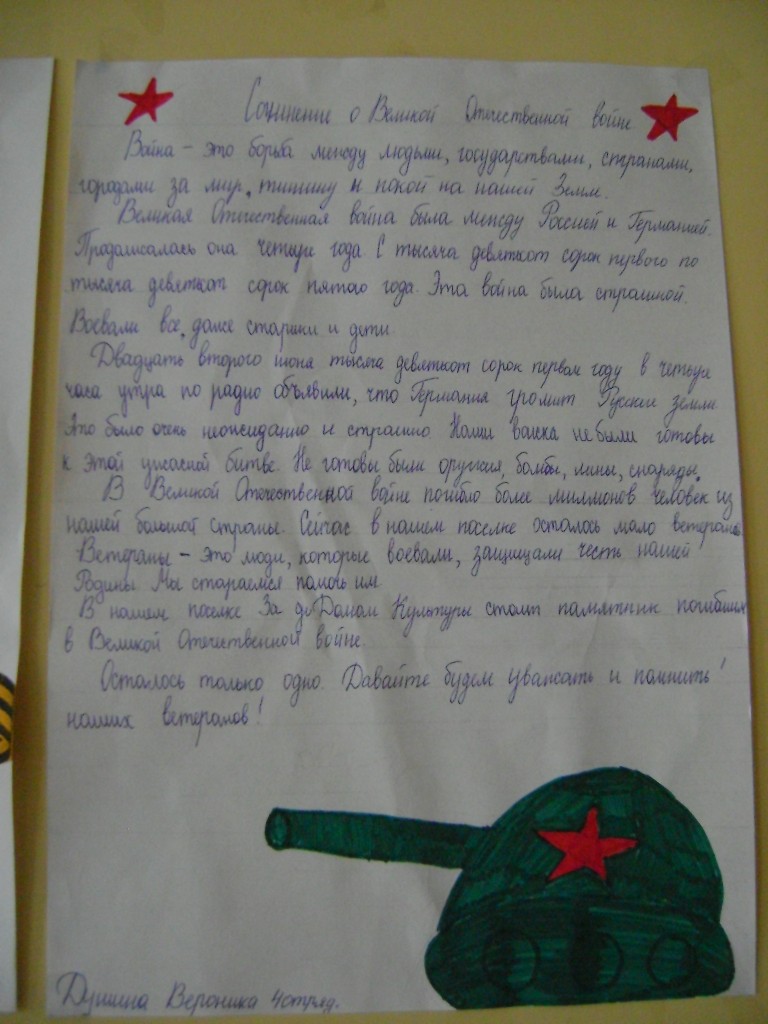 Сочинение о Великой Отечественной войне
Война – это борьба между людьми, государствами, странами,
городами за мир, тишину и покой на нашей Земле.
Великая Отечественная война была между Россией и Германией.
Продолжалась она четыре года. С тысяча девятьсот сорок первого по
тысяча девятьсот сорок пятого года. Эта война была страшной.
Воевали все, даже старики и дети.
Двадцать второго июня тысяча девятьсот сорок первом году в четыре
часа утра по радио объявили, что Германия громит Русские земли.
Это было очень неожиданно и страшно. Наши войска не были готовы
к этой ужасной битве. Не готовы были оружия, бомбы, мины, снаряды.
В Великой Отечественной войне погибло более миллионов человек из
нашей большой страны. Сейчас в нашем поселке осталось мало ветеранов
Ветераны – это люди, которые воевали, защищали честь нашей
Родины. Мы стараемся помочь им.
В нашем поселке За Домом Культуры стоит памятник погибших
в Великой Отечественной войне.
Осталось только одно. Давайте будем уважать и помнить
наших ветеранов!
Душина Вероника 4 отряд.